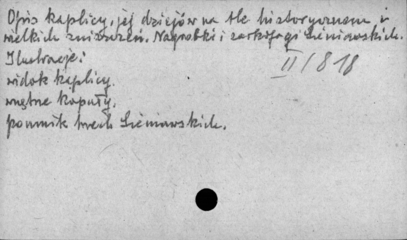 Opis kaplicy, jej dziejów na tle historycznem i
wielkich zniszczeń. Nagrobki i sarkofagi Sieniawskich.
Ilustracje:
II/818
widok kaplicy.
wnętrze kopuły.
pomnik trzech Sieniawskich.